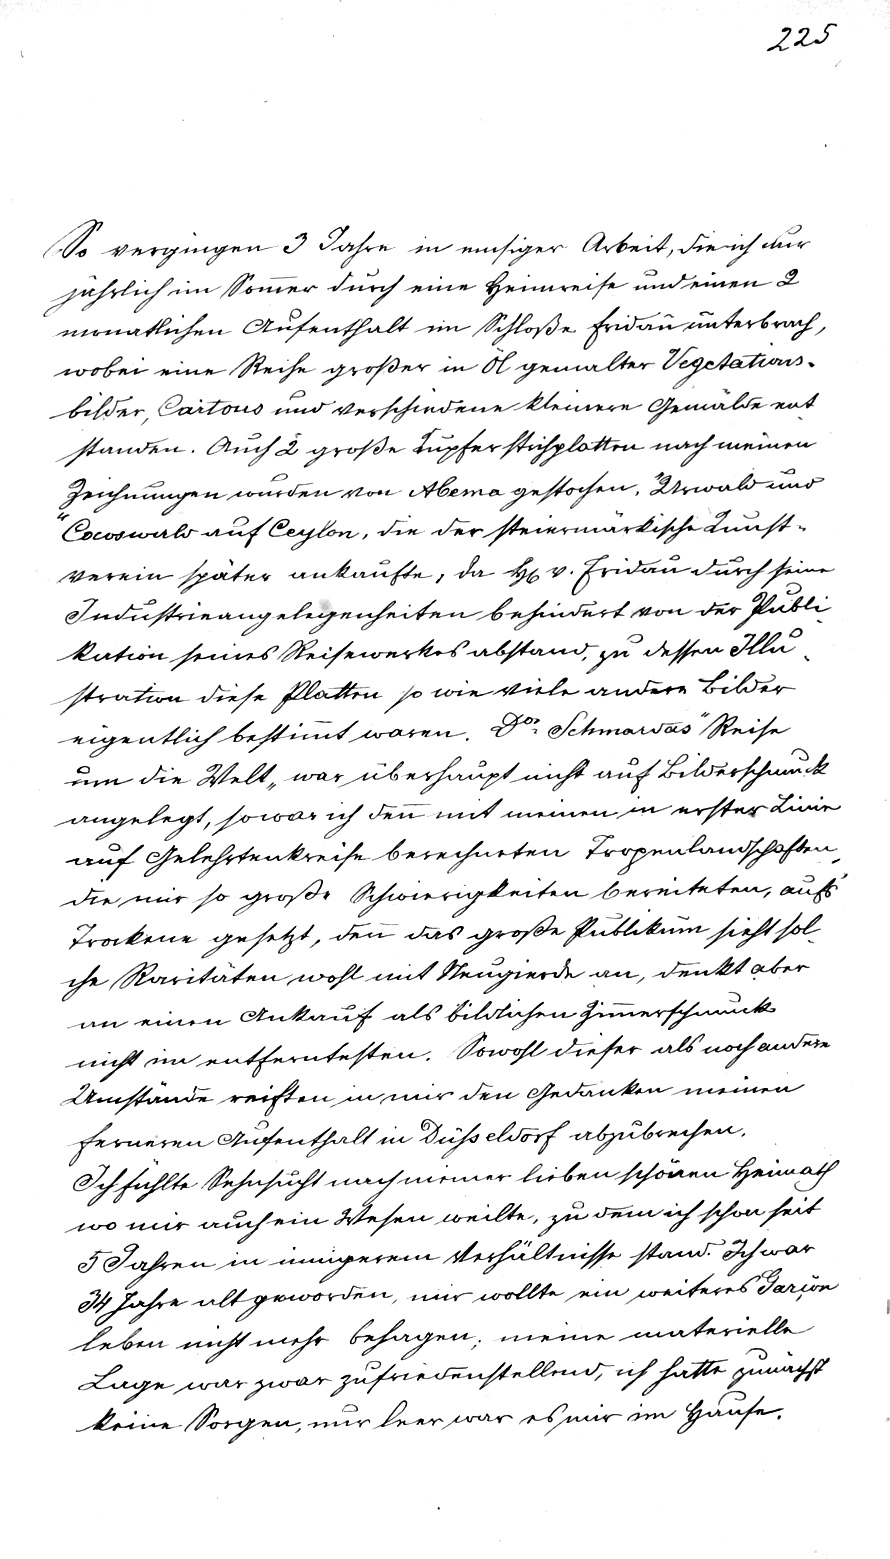 225
So vergingen 3 Jahre in emsiger Arbeit, die ich nur
jährlich im Som̄er durch eine Heimreise und einen 2
monatlichen Aufenthalt im Schloße Fridau unterbrach,
wobei eine Reihe großer in Öl gemalter Vegetations-
bilder, Cartons und verschiedene kleinere Gemälde ent
standen. Auch 2 große Kupferstichplatten nach meinen
Zeichnungen wurden von Abema gestochen, "Urwald und
"Cocoswald auf Ceylon, die der steiermärkische Kunst-
verein später ankaufte, da H. v. Fridau durch seine
Industrieangelegenheiten behindert von der Publi-
kation seines Reisewerkes abstand, zu dessen Illu-
stration diese Platten so wie viele andere Bilder
eigentlich bestim̄t waren. Dor: Schmardas "Reise
um die Welt" war überhaupt nicht auf Bilderschmuck
angelegt, so war ich den̄ mit meinen in erster Linie
auf Gelehrtenkreise berechneten Tropenlandschaften,
die mir so große Schwierigkeiten bereiteten, auf's
Trockene gesetzt, den̄ das große Publikum sieht sol-
che Raritäten wohl mit Neugierde an, denkt aber
an einen Ankauf als bildlichen Zim̄erschmuck
nicht im entferntesten. Sowohl dieser als noch andere
Umstände reiften in mir den Gedanken meinen
ferneren Aufenthalt in Düsseldorf abzubrechen.
Ich fühlte Sehnsucht nach meiner lieben schönen Heimath
wo mir auch ein Wesen weilte, zu dem ich schon seit
5 Jahren in innigerem Verhältnisse stand. Ich war
34 Jahre alt geworden, mir wollte ein weiteres Garçon
leben nicht mehr behagen; meine materielle
Lage war zwar zufriedenstellend, ich hatte zunächst
keine Sorgen, nur leer war es mir im Hause.